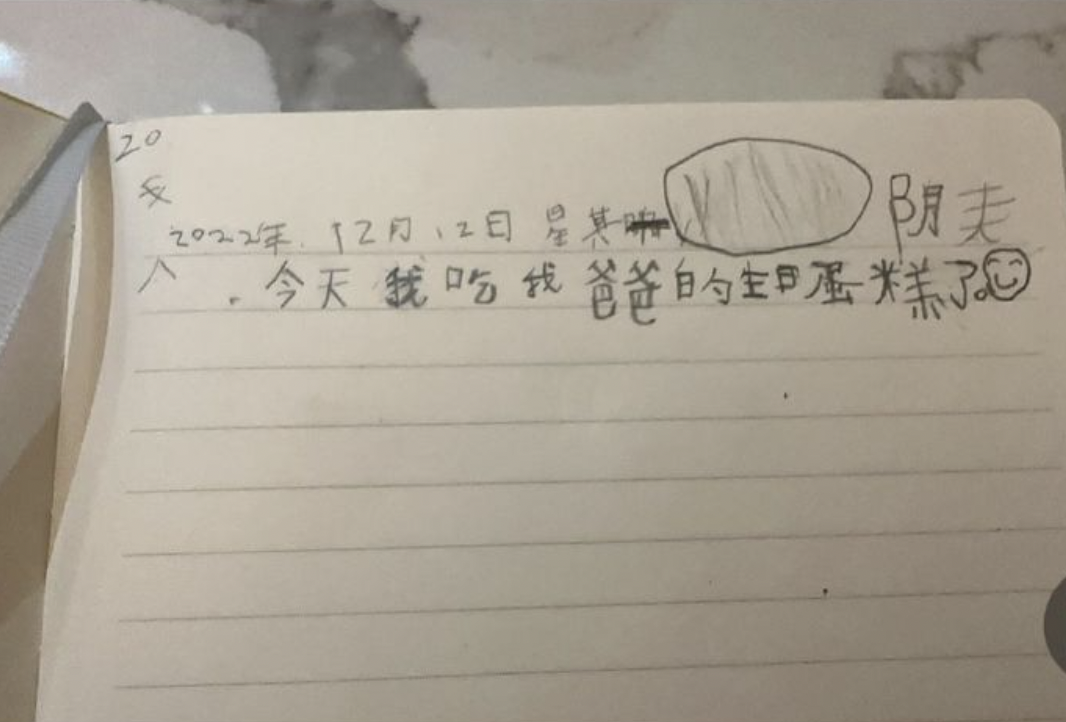 20
2022年.12月12日 星其 阴夫
今天我吃我爸爸的生日蛋糕了。